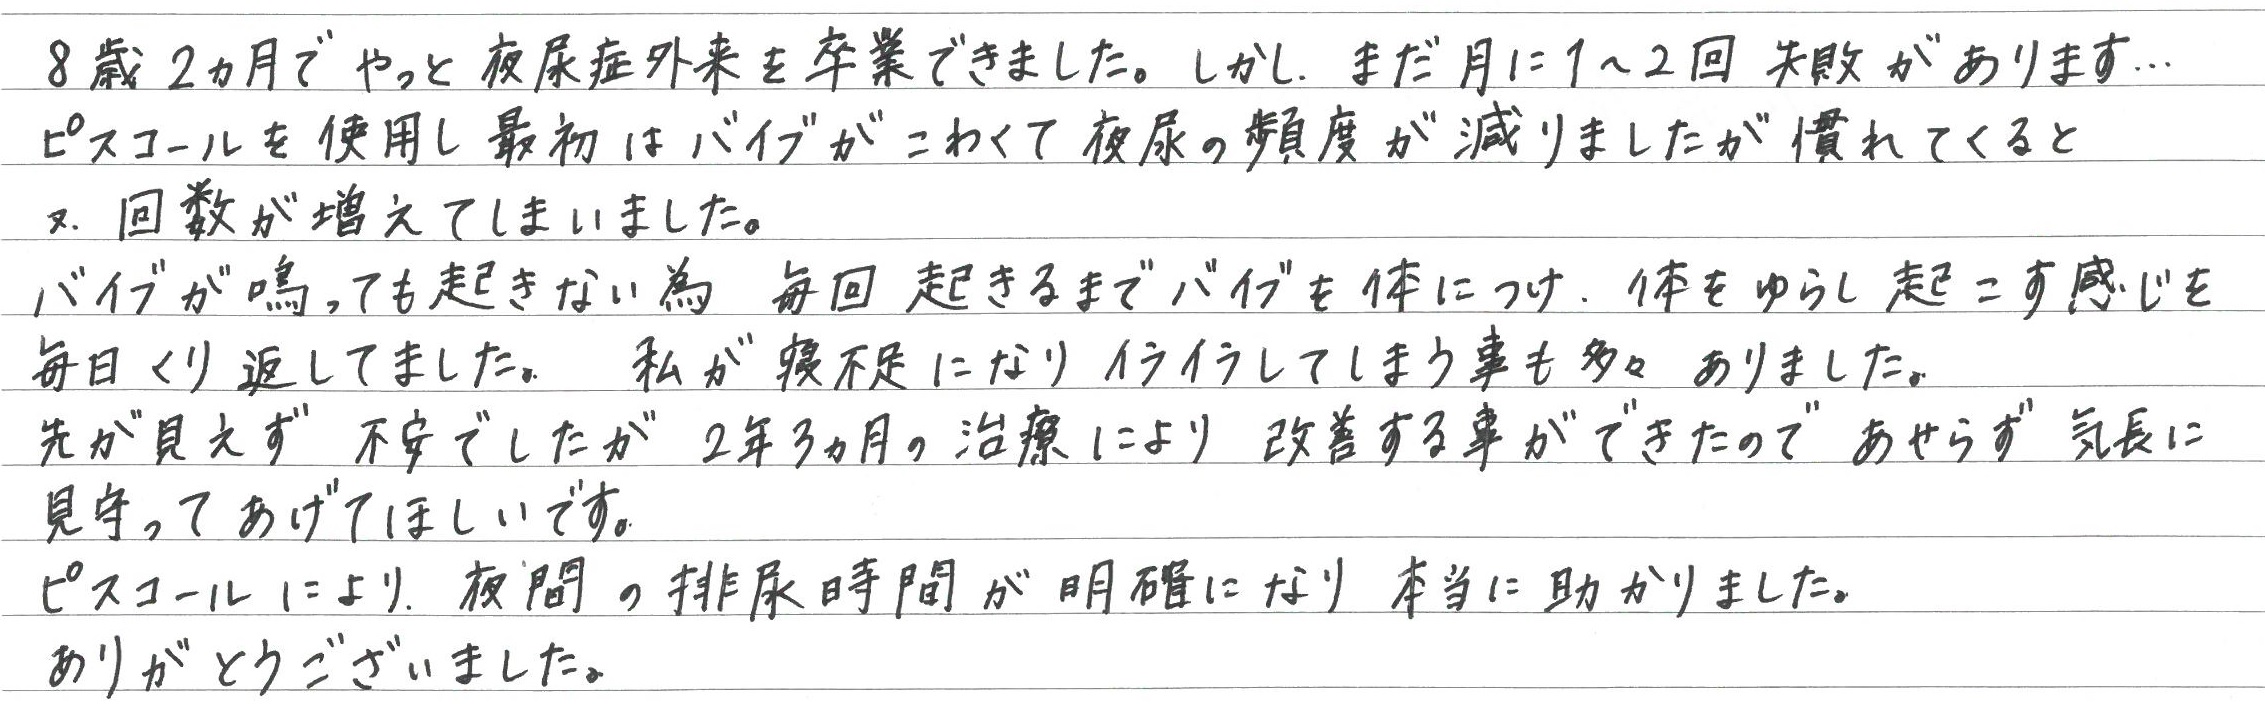 8歳2ヵ月でやっと夜尿症外来を卒業できました。しかし、まだ月に1～2回 失敗があります…
ピスコールを使用し最初はバイブがこわくて夜尿の頻度が減りましたが慣れてくると
又、回数が増えてしまいました。
バイブが鳴っても起きない為 毎回 起きるまでバイブを体につけ、体をゆらし起こす感じを
毎日くり返してました。 私が寝不足になりイライラしてしまう事も多々ありました。
先が見えず 不安でしたが 2年3ヵ月の治療により 改善する事ができたので あせらず 気長に
見守ってあげてほしいです。
ピスコールにより、夜間の排尿時間が明確になり 本当に助かりました。
ありがとうございました。